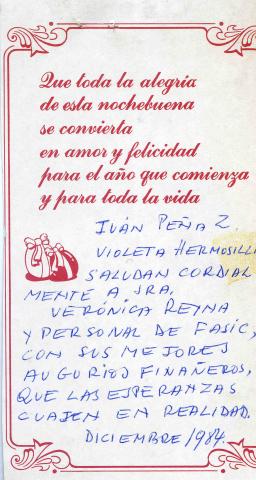 Que toda la alegria
de esta nochebuena
se convierta
en amor y felicidad
para el año que comienza
y para toda la vida
IVÁN PEÑA Z.
VIOLETA HERMOSILL
SALUDAN CORDIAL
MENTE A SRA.
VERÓNICA REYNA
Y PERSONAL DE FASIC,
CON SUS MEJORES
AUGURIOS FINAÑEROS,
QUE LAS ESPERANZAS
CUAJEN EN REALIDAD.
DICIEMBRE/984.